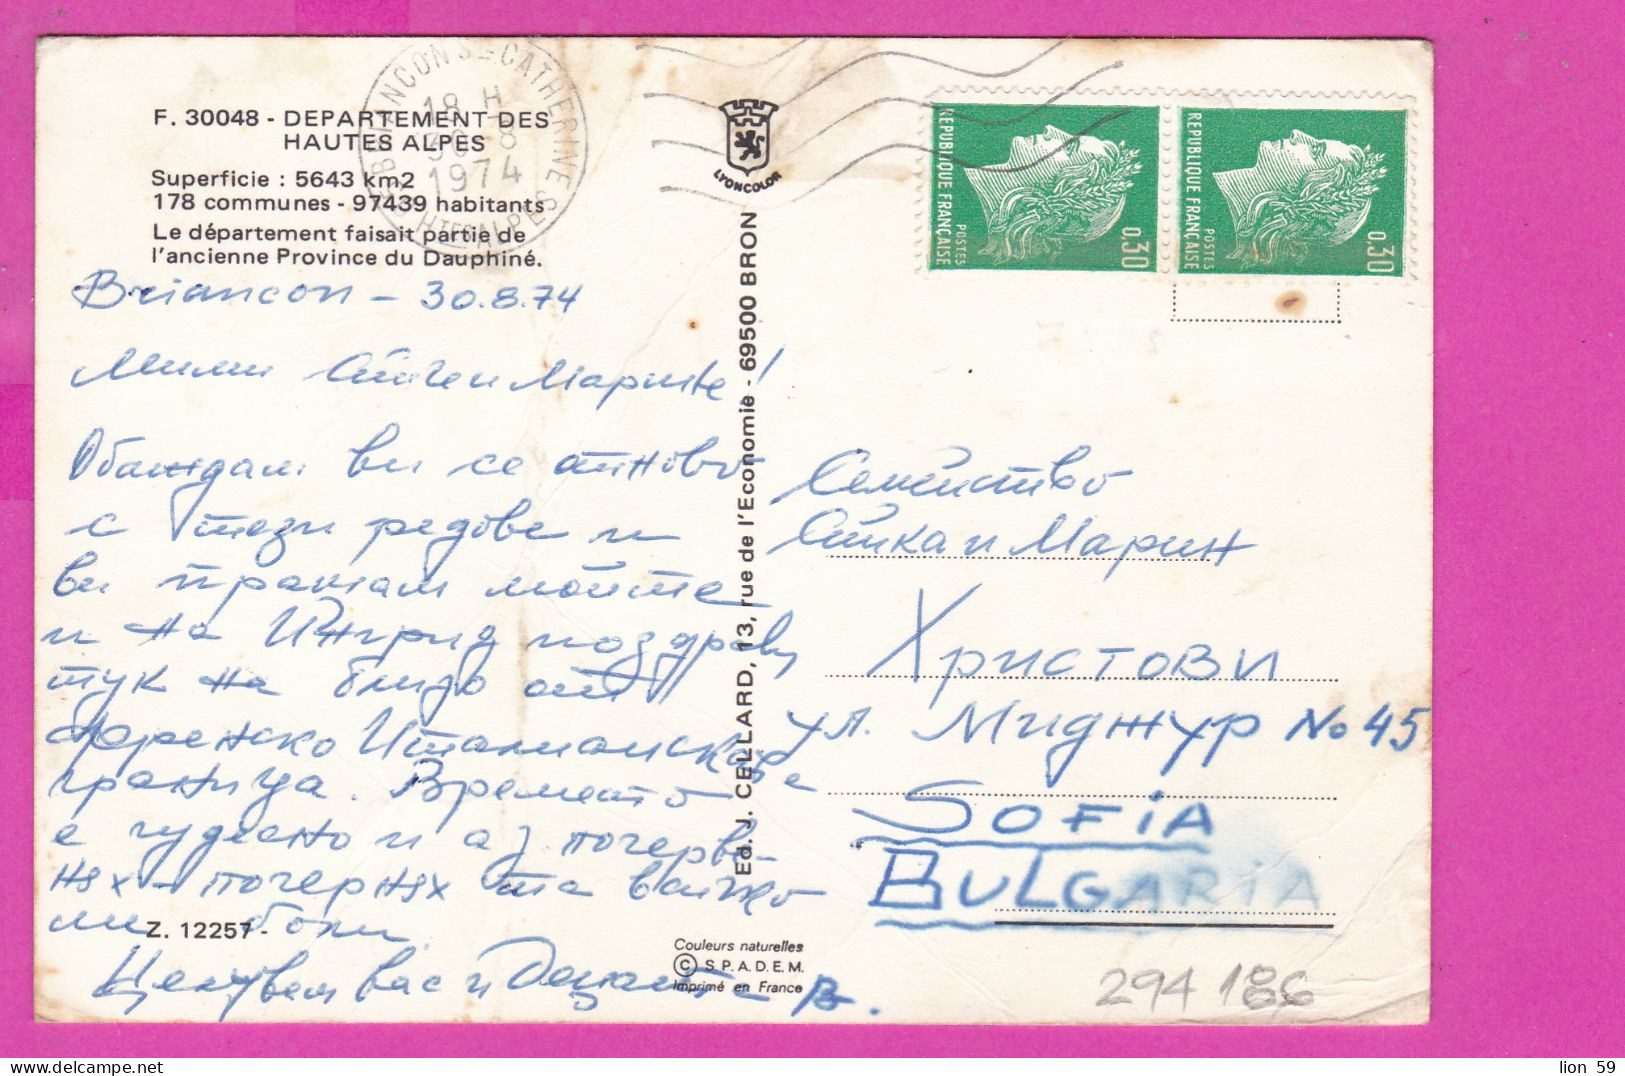 BRIANCON Ste-CATHERINE
18 H
30-8
1974
HTES ALPES
F. 30048 - DEPARTEMENT DES
HAUTES ALPES
Superficie : 5643 km2
178 communes - 97439 habitants
Le département faisait partie de
l'ancienne Province du Dauphiné.
Briancon - 30.8.74
Мили и Марине!
Обаждам ви се отново
с тези редове и
ви пращам моите
и на Ингрид поздрави
тук на близо от
Френско Италианската
граница. Времето
е чудесно и аз почерве-
нях - почернях та всичко
ми боли
Целувам вас и Дечицата В.
Z. 12257 -
LYONCOLOR
Ed. J. CELLARD, 13, rue de l'Economie - 69500 BRON
Couleurs naturelles
© S.P.A.D.E.M.
Imprimé en France
REPUBLIQUE FRANÇAISE
POSTES
0,30
REPUBLIQUE FRANÇAISE
POSTES
0,30
Семейство
Сийка и Марин
Христови
ул. Миджур No 45
SOFIA
BULGARIA
294 186
lion 59